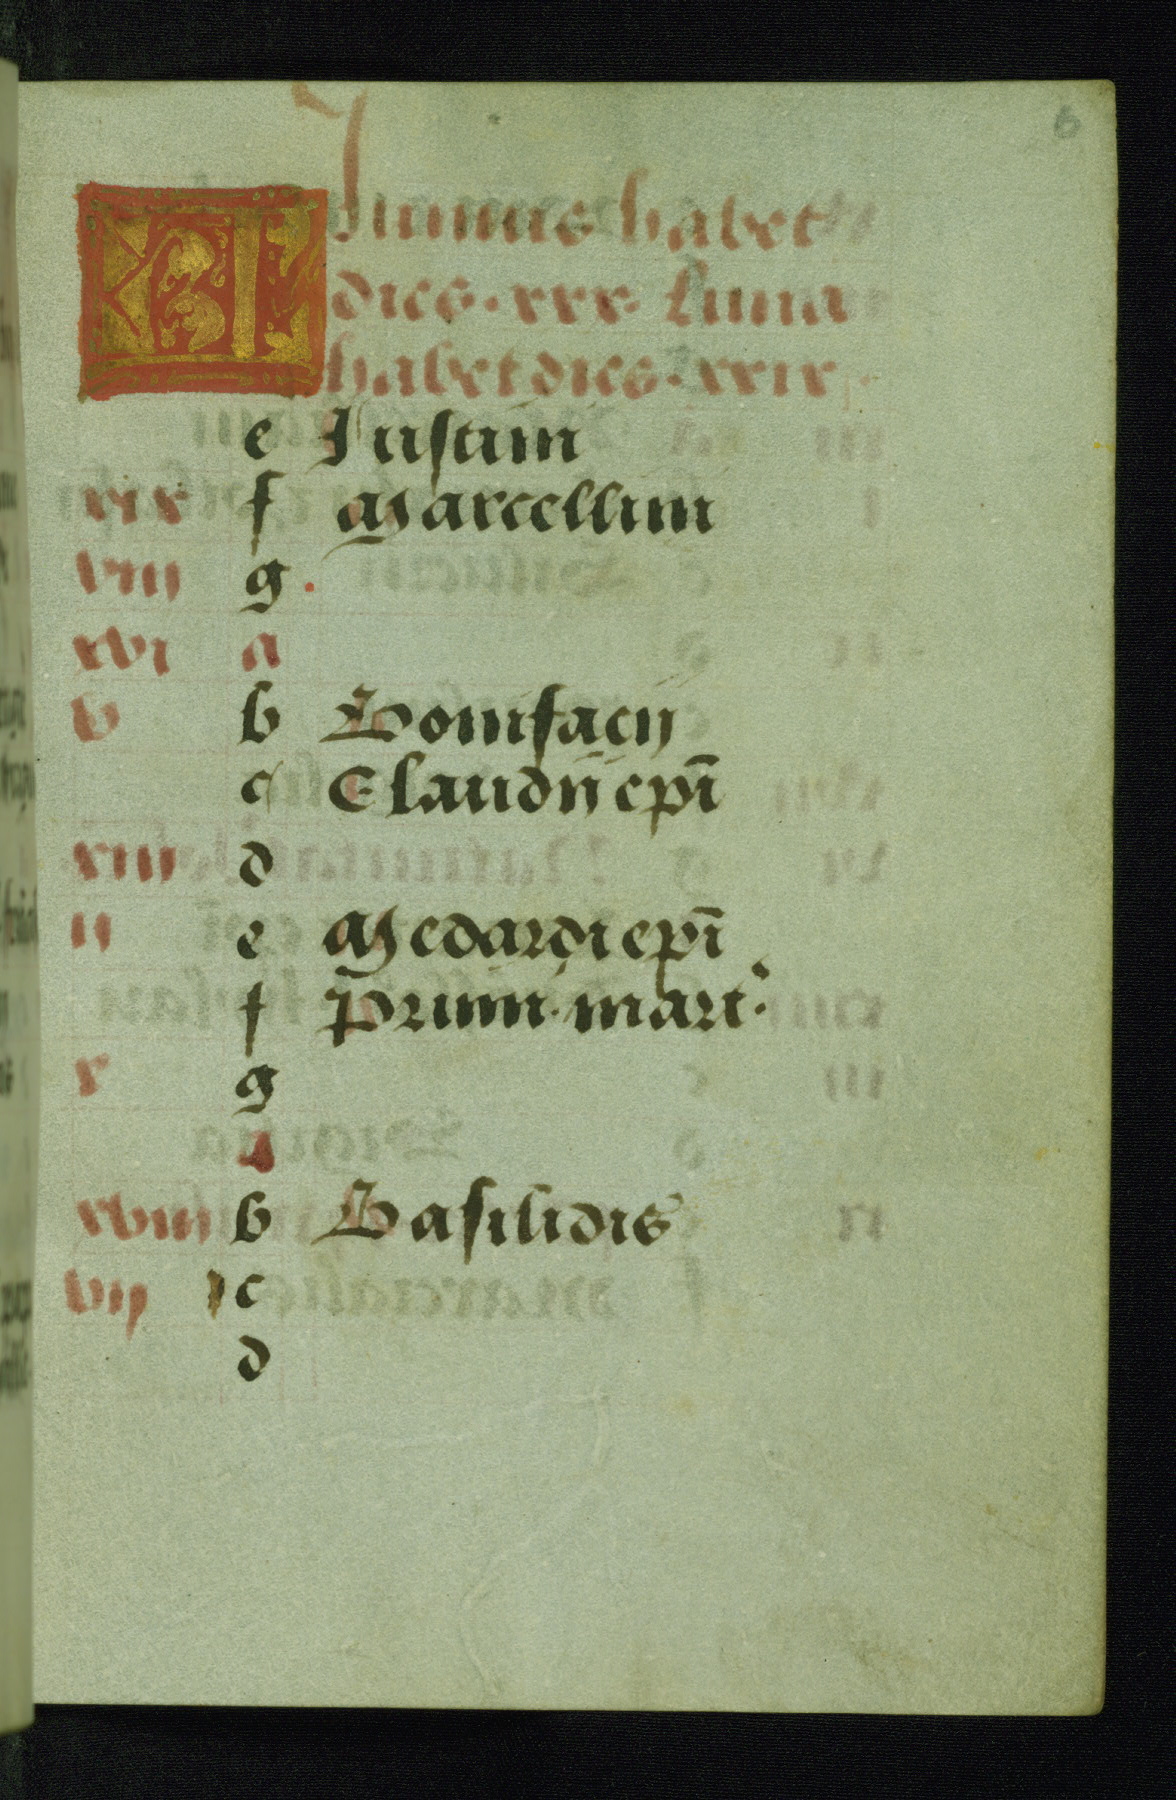 KL Junius habet
dies · xxx · Luna
habet dies · xxix ·
e Justini
xix f Marcellini
viii g
xvi a
v b Bonifacij
c Claudij epi̅
xiii d
ii e Medardi epi̅
f Primi · mart·
x g
A
xviii b Basilidis
vij c
d